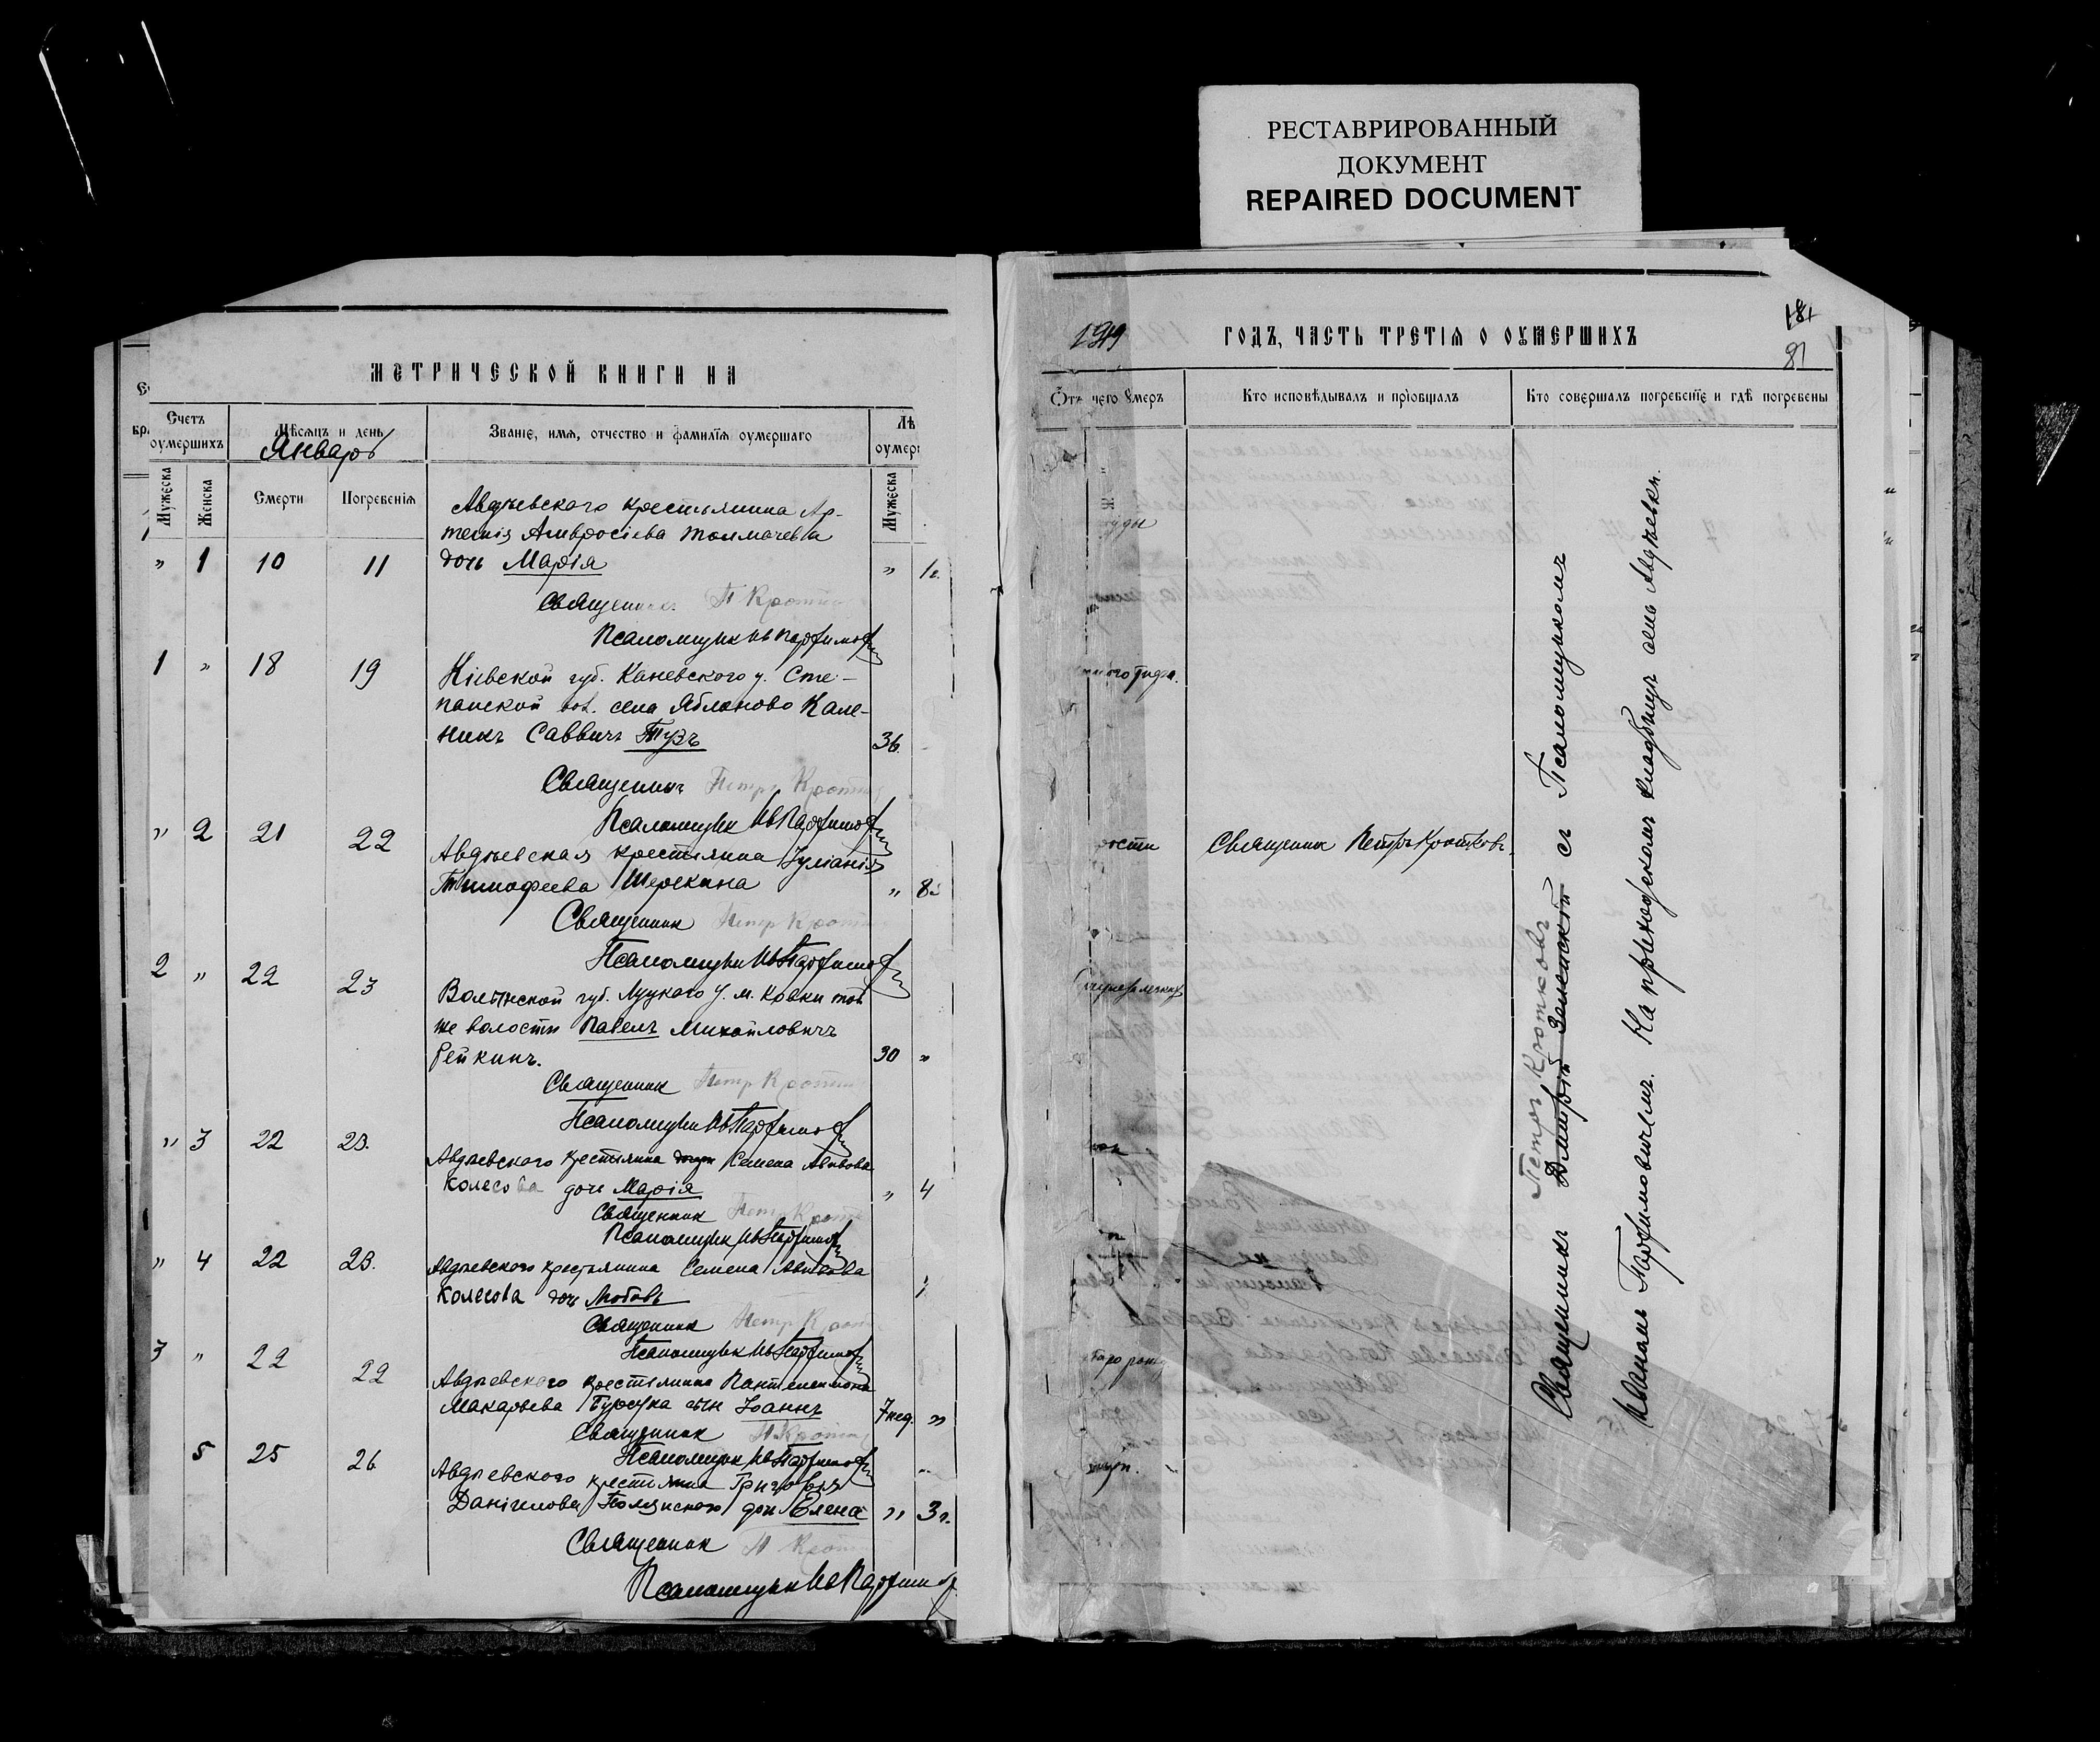 РЕСТАВРИРОВАННЫЙ
ДОКУМЕНТ
REPAIRED DOCUMENT
МЕТРИЧЕСКОЙ КНИГИ НА
Счетъ оумершихъ
Мѣсяцъ и день
Январь
Званіе, имя, отчество и фамилія оумершаго
Лѣ
оумер
Мужеска
Женска
Смерти
Погребенія
Мужеска
Авдѣевскаго крестьянина Ар-
темія Амвросіева Толмачева
" 1 10 11 дочь Марія " 1г.
Священникъ П Кротк
Псаломщик Ив Парфимо
1 " 18 19 Кіевской губ. Каневского у. Сте-
панской вол. села Яблоново Кале-
никъ Саввичъ Тузъ 36.
Священникъ Петръ Кротк
Псаломщик Ив Парфимо
" 2 21 22 Авдѣевская крестьянка Іуліанія
Тимофеева Шерекина " 8
Священник Петр Кротк
Псаломщик Ив Парфимо
2 " 22 23 Волынской губ. Луцкого у. м. Колки той
же волости Павелъ Михайловичъ
Рейкинъ. 30 "
Священник Петр Кротк
Псаломщик Ив Парфимо
" 3 22 23. Авдѣевского крестьянина дочь Семена Авивова
Колесова дочь Марія " 4
Священник Петр Кротк
Псаломщик Ив Парфимо
" 4 22 23. Авдѣевского крестьянина Семена Авивова
Колесова дочь Любовь
Священник Петр Кротк
Псаломщик Ив Парфимо
3 " 22 22 Авдѣевского крестьянина Пантелеимона
Макарьева Бурсука сын Іоаннъ 7 нед. "
Священник П Кротк
Псаломщик Ив Парфимо
5 25 26 Авдѣевского крестьянина Григорія
Даніилова Полянского дочь Елена " 3 г.
Священник П Кротк
Псаломщик Ив Парфим
1919 ГОДЪ, ЧАСТЬ ТРЕТІЯ О ОУМЕРШИХЪ
181
81
Отъ чего умеръ
Кто исповѣдывалъ и пріобщалъ
Кто совершалъ погребеніе и гдѣ погребены
уды
ного тифа.
ости Священник Петръ Кротковъ.
Священникъ Дмитрій Зенитскій съ Псаломщикомъ
Петръ Кротковъ
Иваномъ Парфимовичемъ. На приходскомъ кладбищѣ села Авдѣевки.